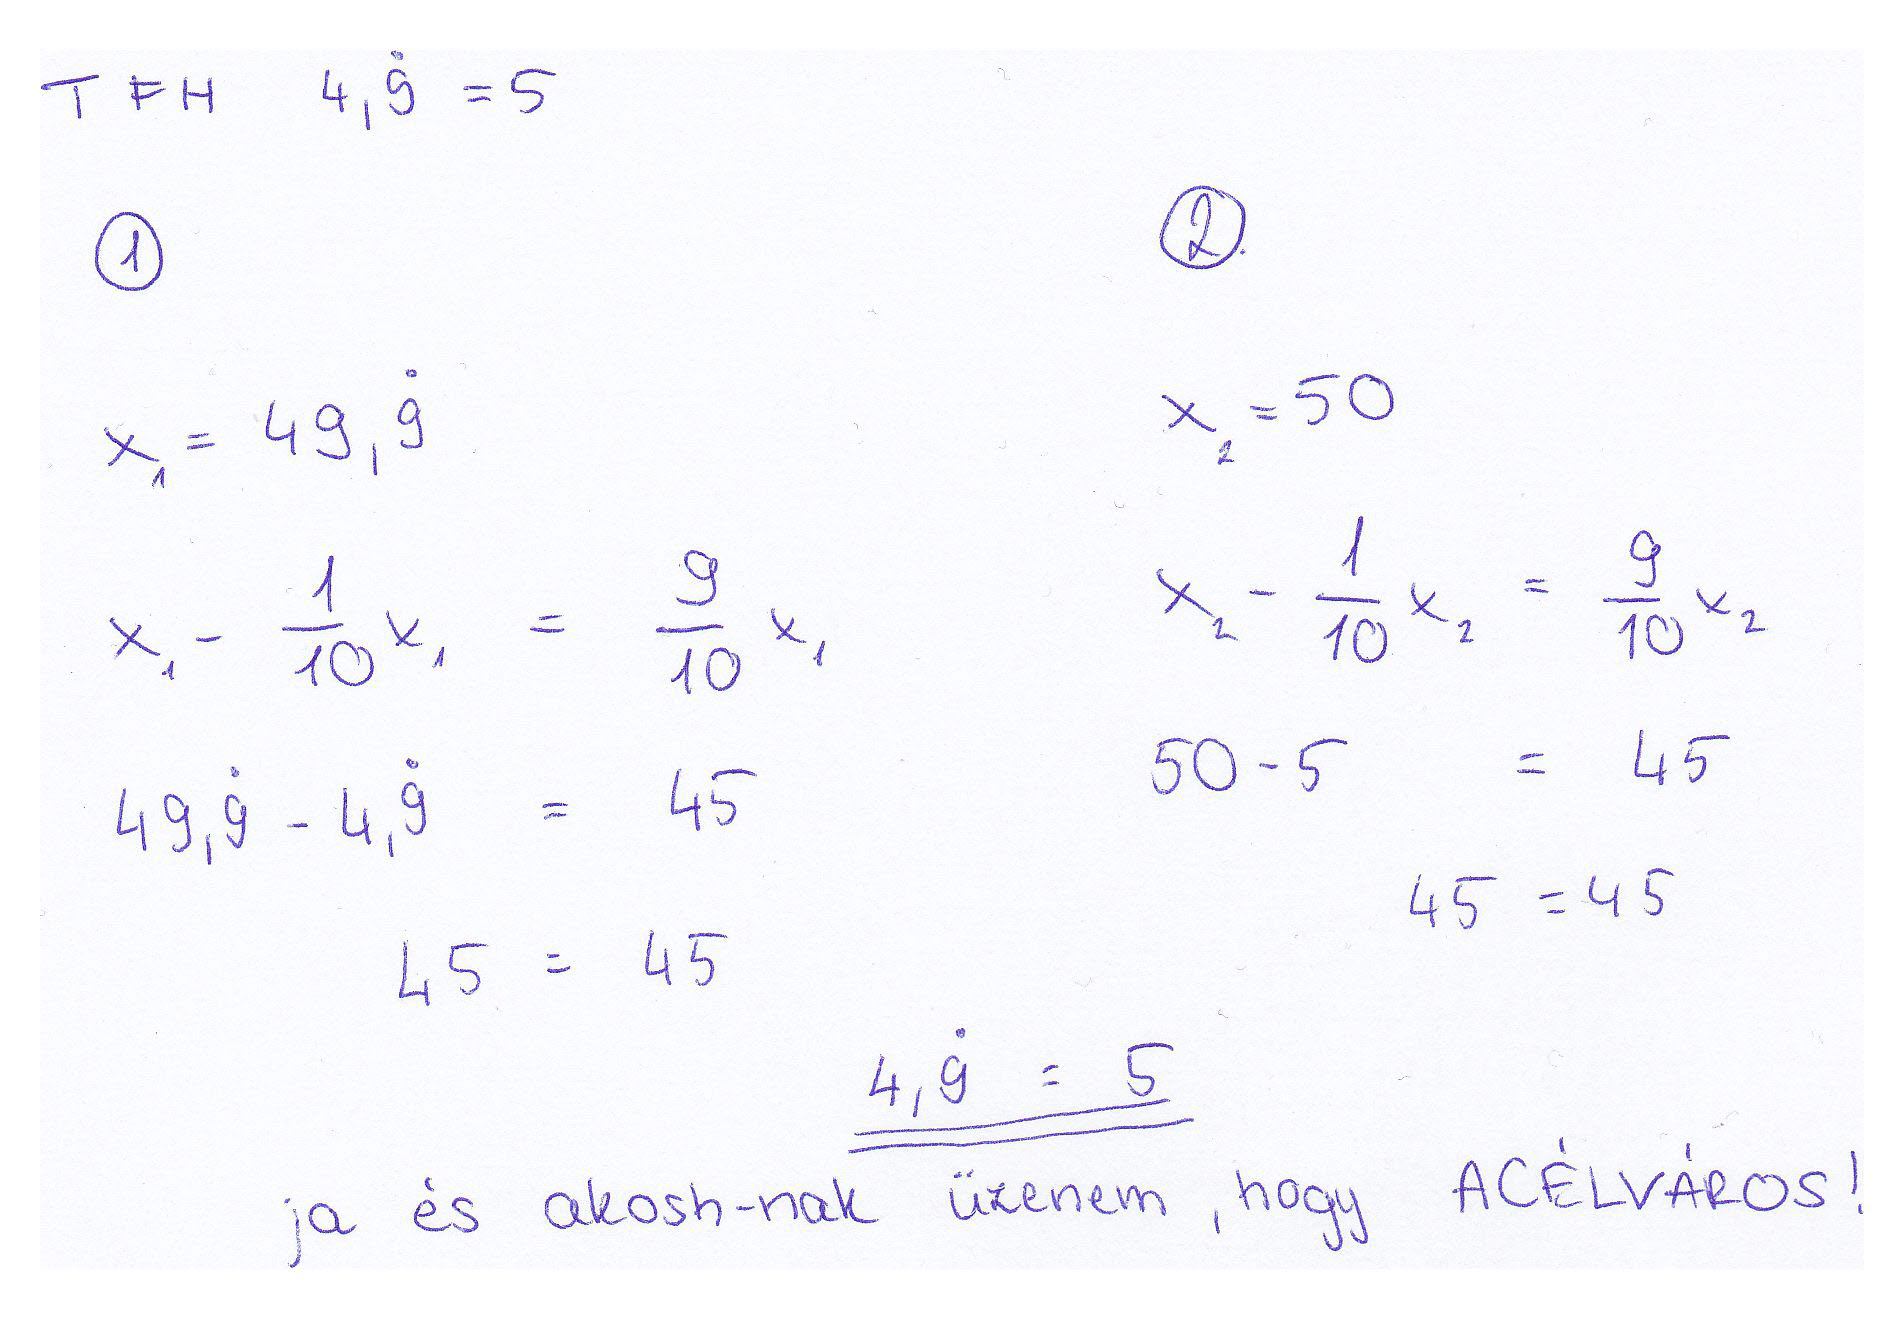 TFH 4,9̇ = 5
①
x₁ = 49,9̇
x₁ - 1/10 x₁ = 9/10 x₁
49,9̇ - 4,9̇ = 45
45 = 45
②.
x₂ = 50
x₂ - 1/10 x₂ = 9/10 x₂
50 - 5 = 45
45 = 45
4,9̇ = 5
ja és akosh-nak üzenem, hogy ACÉLVÁROS!